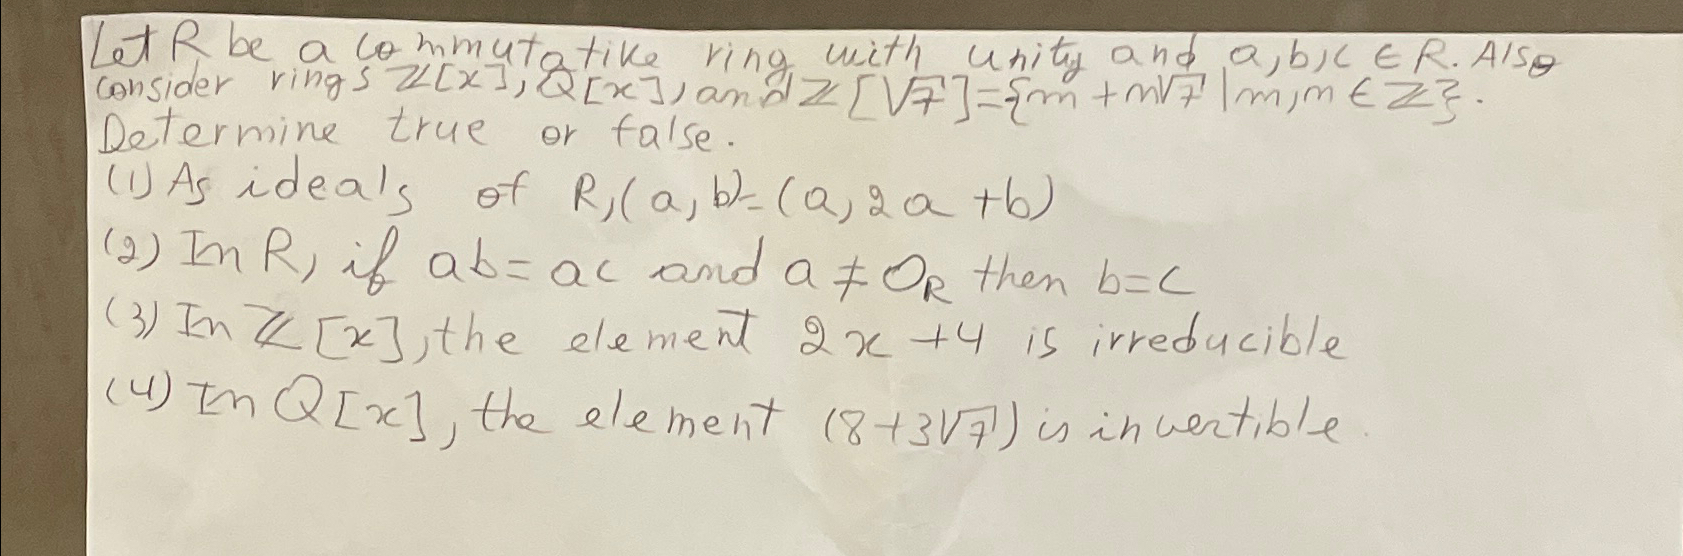 Let R be a commutative ring with unity and a,b,c ∈ R. Also
consider rings ℤ[x], Q[x], and ℤ[√7]={m+n√7|m,n∈ℤ}.
Determine true or false.
(1) As ideals of R, (a,b)=(a,2a+b)
(2) In R, if ab=ac and a≠0_R then b=c
(3) In ℤ[x], the element 2x+4 is irreducible
(4) In Q[x], the element (8+3√7) is invertible.